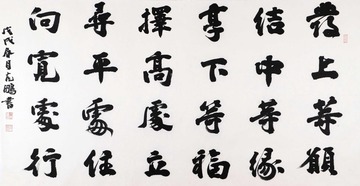 發上等願
結中等緣
享下等福
擇高處立
尋平處住
向寬處行
戊戌春月光鵬書